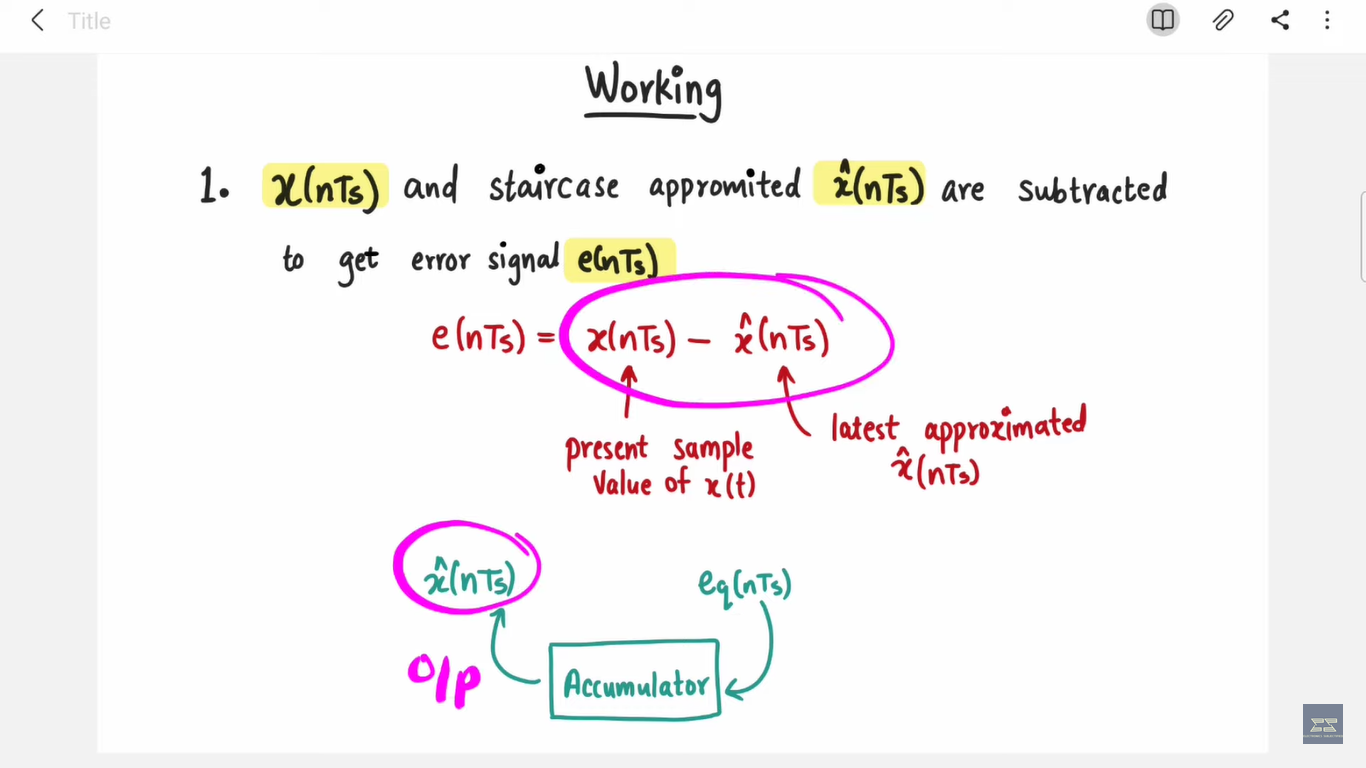 Title
Working
1. x(nTs) and staircase appromited x̂(nTs) are subtracted
to get error signal e(nTs)
e(nTs) = x(nTs) - x̂(nTs)
present sample
value of x(t)
latest approximated
x̂(nTs)
x̂(nTs)
eq(nTs)
O/P
Accumulator